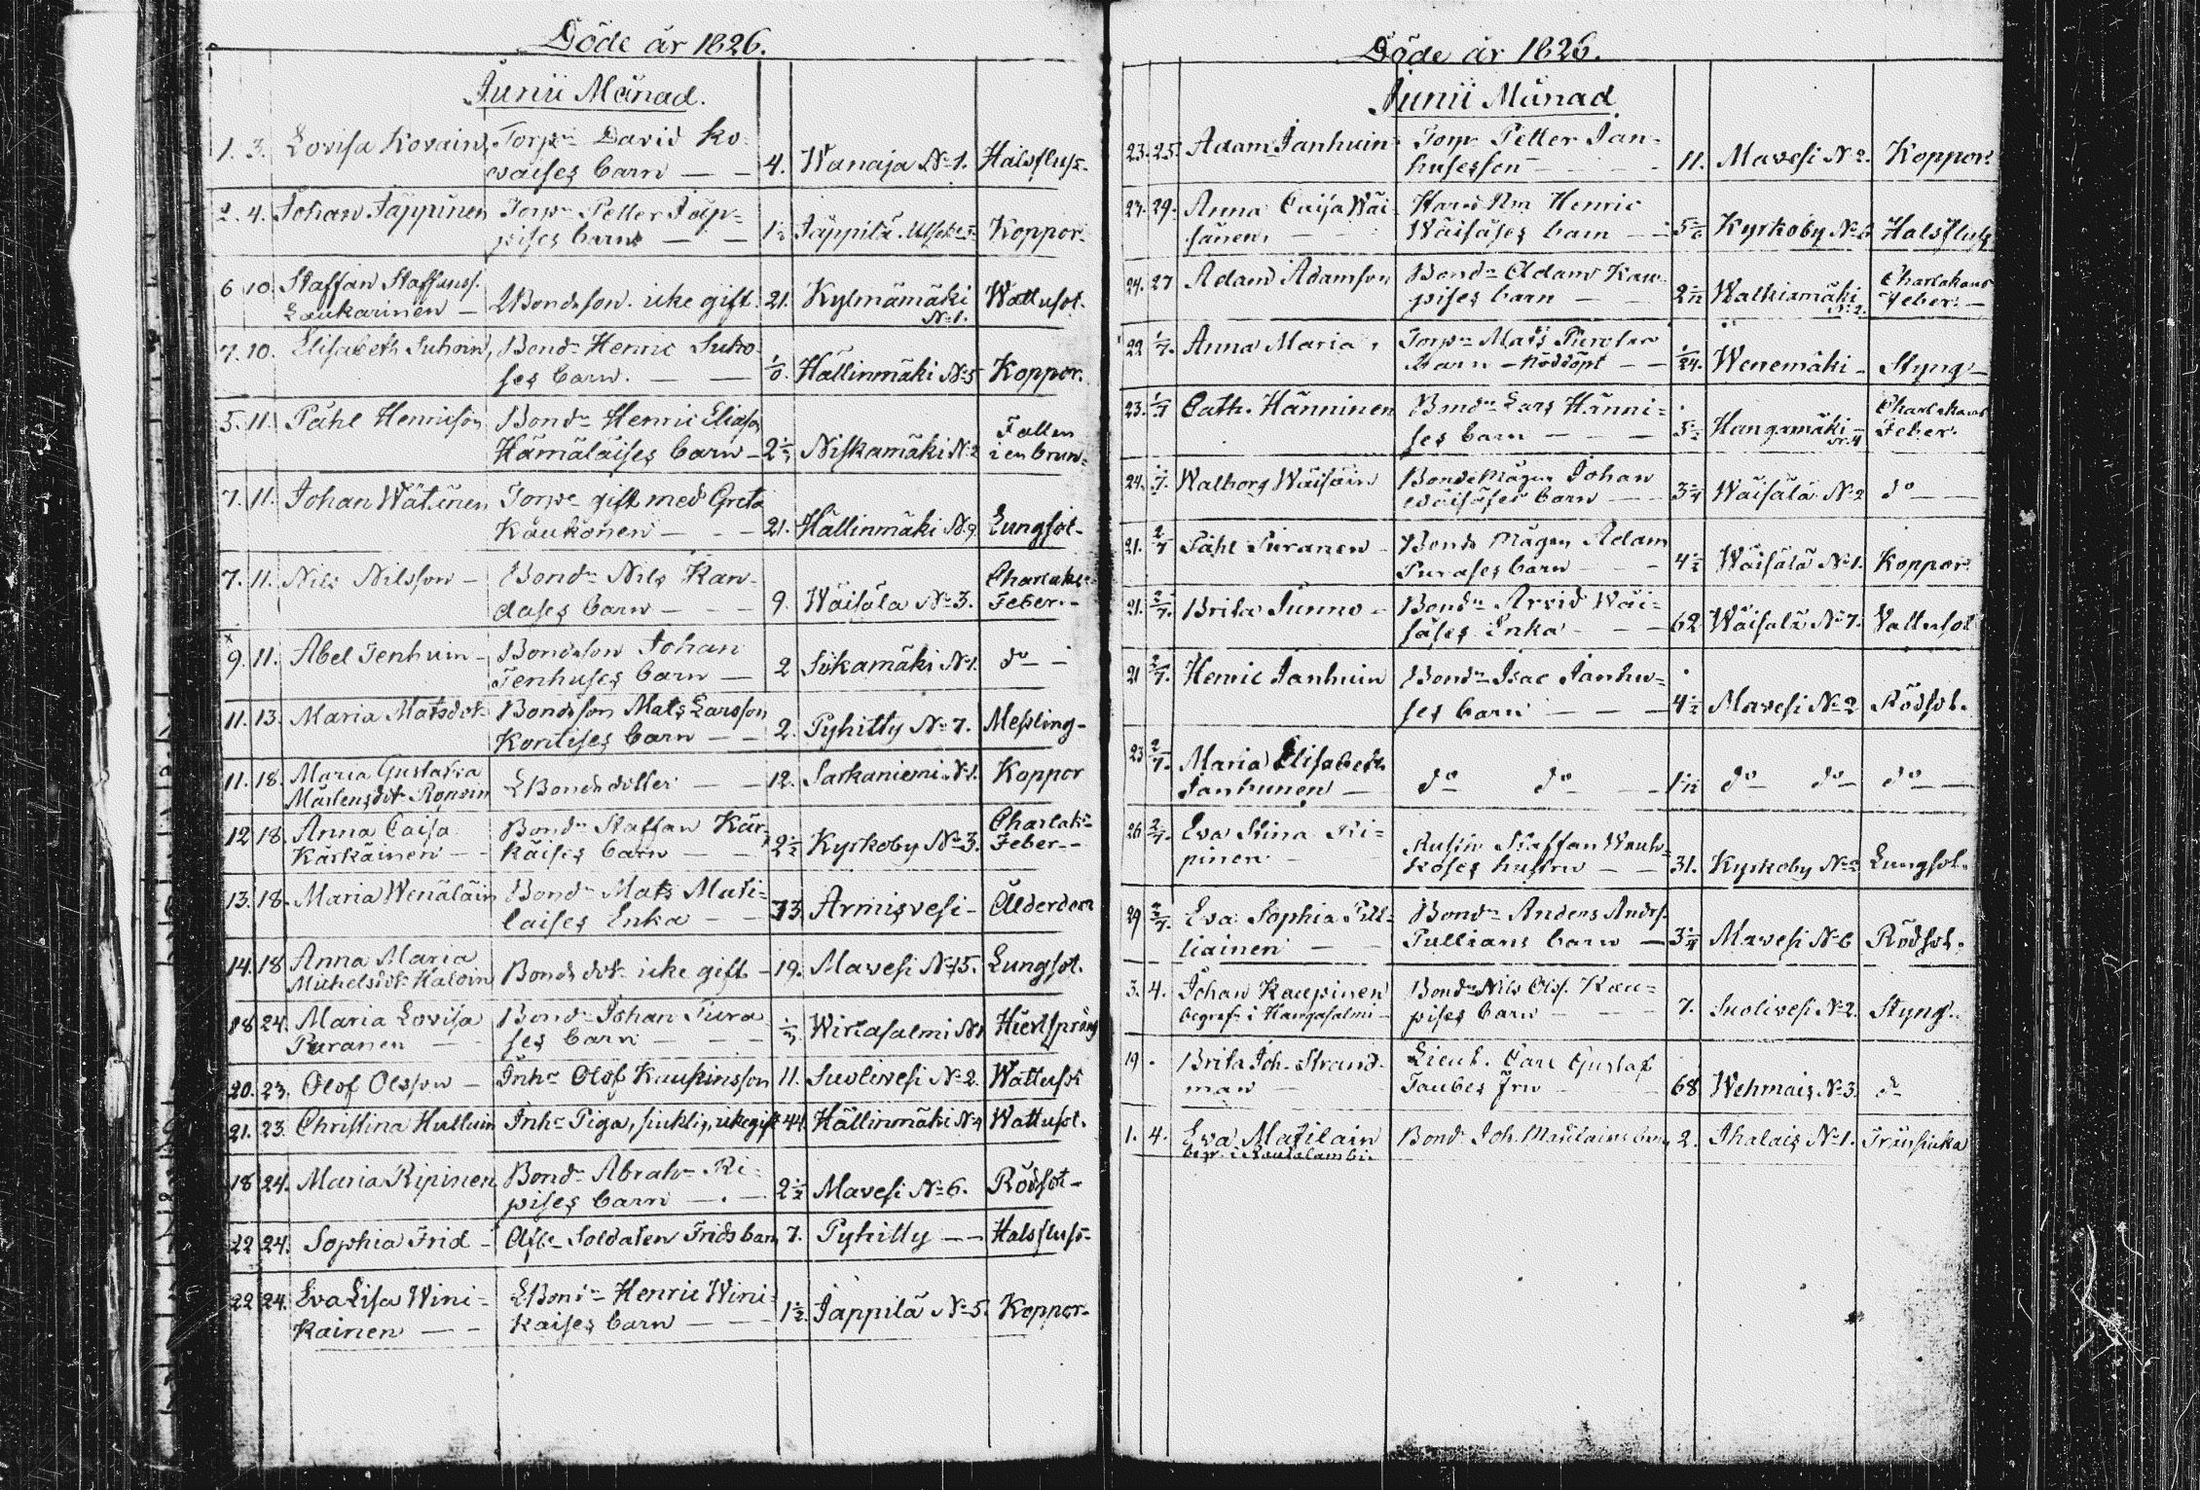 Döde år 1826.
Junii Månad.
1. 3. Lovisa Kovain, Torp:n David Ko-
vaises barn — — 4. Wanaja No 1. Halsfluss.
2. 4. Johan Jäppinen Torp:n Petter Jäp-
pises barn — — Jäppilä Koppor.
6 10. Staffan Staffanss.
Laukarinen — Bondeson icke gift 21. Kylmämäki Wattusot.
No 1.
7. 10. Elisabeth Suhoin, Bond:n Henric Suho-
ses barn. — — Hällinmäki No 5 Koppor.
5. 11. Påhl Henricson Bond:n Henric Eliasson Fallen
Hämäläises barn — Niskamäki No 2 i en brun.
7. 11. Johan Wätäinen Torp:e gift med Greta
Kaukonen — — 21. Hällinmäki No 9 Lungsot.
7. 11. Nils Nilsson — Bond:n Nils Kan- Charlak:s
dases barn — — 9. Wäisälä No 3. Feber. —
9. 11. Abel Jenhuin — Bondeson Johan
Jenhuses barn — 2 Siikamäki No 1. do —
11. 13. Maria Matsdotr Bondeson Mats Larsson
Kontises barn — — 2. Pyhitty No 7. Messling —
11. 18. Maria Gustafva
Mårtensdotr Roposin Bondedotter — — 12. Sarkaniemi No 1. Koppor
12 18. Anna Caisa Bond:n Staffan Kär- Charlak:s
Kärkäinen — — käises barn — — 2½ Kyrkoby No 3. Feber —
13. 18. Maria Wenäläin Bond:n Mats Mati-
laises Enka — — 73. Armisvesi — Ålderdom
14. 18 Anna Maria
Michelsdotr Haloin Bondedotr icke gift — 19. Mavesi No 15. Lungsot.
18 24. Maria Lovisa Bond:n Johan Pura-
Puranen — — ses barn — — Wirtasalmi No 1 Hiertspräng
20. 23. Olof Olsson — Inh:s Olof Kaupinsson 11. Suolivesi No 2. Wattusot
21. 23. Christina Hultuin Inh:s Piga, siuklig, icke gift 44. Hällinmäki No 4 Wattusot.
18 24. Maria Ripinen Bond:n Abrah:m Ri-
pises barn — — 2½ Mavesi No 6. Rödsot —
22 24. Sophia Frid — Afsk:e Soldaten Frids barn 7. Pyhitty — — Halsfluss —
22 24. Eva Lisa Wini- Bond:n Henric Wini-
kainen — — kaises barn — — 1½. Jäppilä No 5. Koppor —
Döde år 1826.
Junii Månad
23. 25. Adam Janhuin Torp:n Petter Jan-
husesson — — 11. Mavesi No 2. Koppor.
27. 29. Anna Caisa Wäi- Henric
sänen, — — Wäisäses barn — Kyrkoby No Halsfluss
24. 27 Adam Adamson Bond:n Adam Kau- Charlakans
pises barn — — Walkiamäki Feber. —
No 2.
22 1/7. Anna Maria, Torp:n Mats
barn — nöddöpt — — 1/24. Wenemäki — Styng —
23. 1/7 Cath. Hänninen Bond:n Lars Hänni- Charlakans
ses barn — — — Hangasmäki Feber.
No 4
24. 1/7 Walborg Wäisäin Bonde Mågen Johan
Wäisäses barn — — Wäisälä No 2 do — —
21. 2/7 Påhl Puranen — Bonde Mågen Adam
Purases barn — — 4½ Wäisälä No 1. Koppor
21. 2/7. Brita Sunno — Bond:n Arvid Wäi-
säses Enka — — 62 Wäisälä No 7. Vattusot
21 2/7. Henric Janhuin Bond:n Isac Janhu-
ses barn — — — 4½ Mavesi No 2 Rödsot.
23 2/7. Maria Elisabeth
Janhunen — do do — do — do — do —
26 2/7. Eva Stina Ri- Staffan Wauh-
pinen — — koses hustru — — 31. Kyrkoby No Lungsot.
29 2/7. Eva Sophia Pul- Bond:n Anders Anders.
liainen — — Pullians barn — Mavesi No 6 Rödsot.
3. 4. Johan Kaupinen Bond:n Nils Olss. Kau-
begrof: i Kangasalmi — pises barn — — 7. Suolivesi No 2. Styng.
19. Brita Joh. Strand- Lieut. Carl Gustaf
man — Taubes fru — 68 Wehmais No 3. do
1. 4. Eva Matilain Bond. Joh. Matilains barn 2. Ihalais No 1.
begr. i Rautalambi.